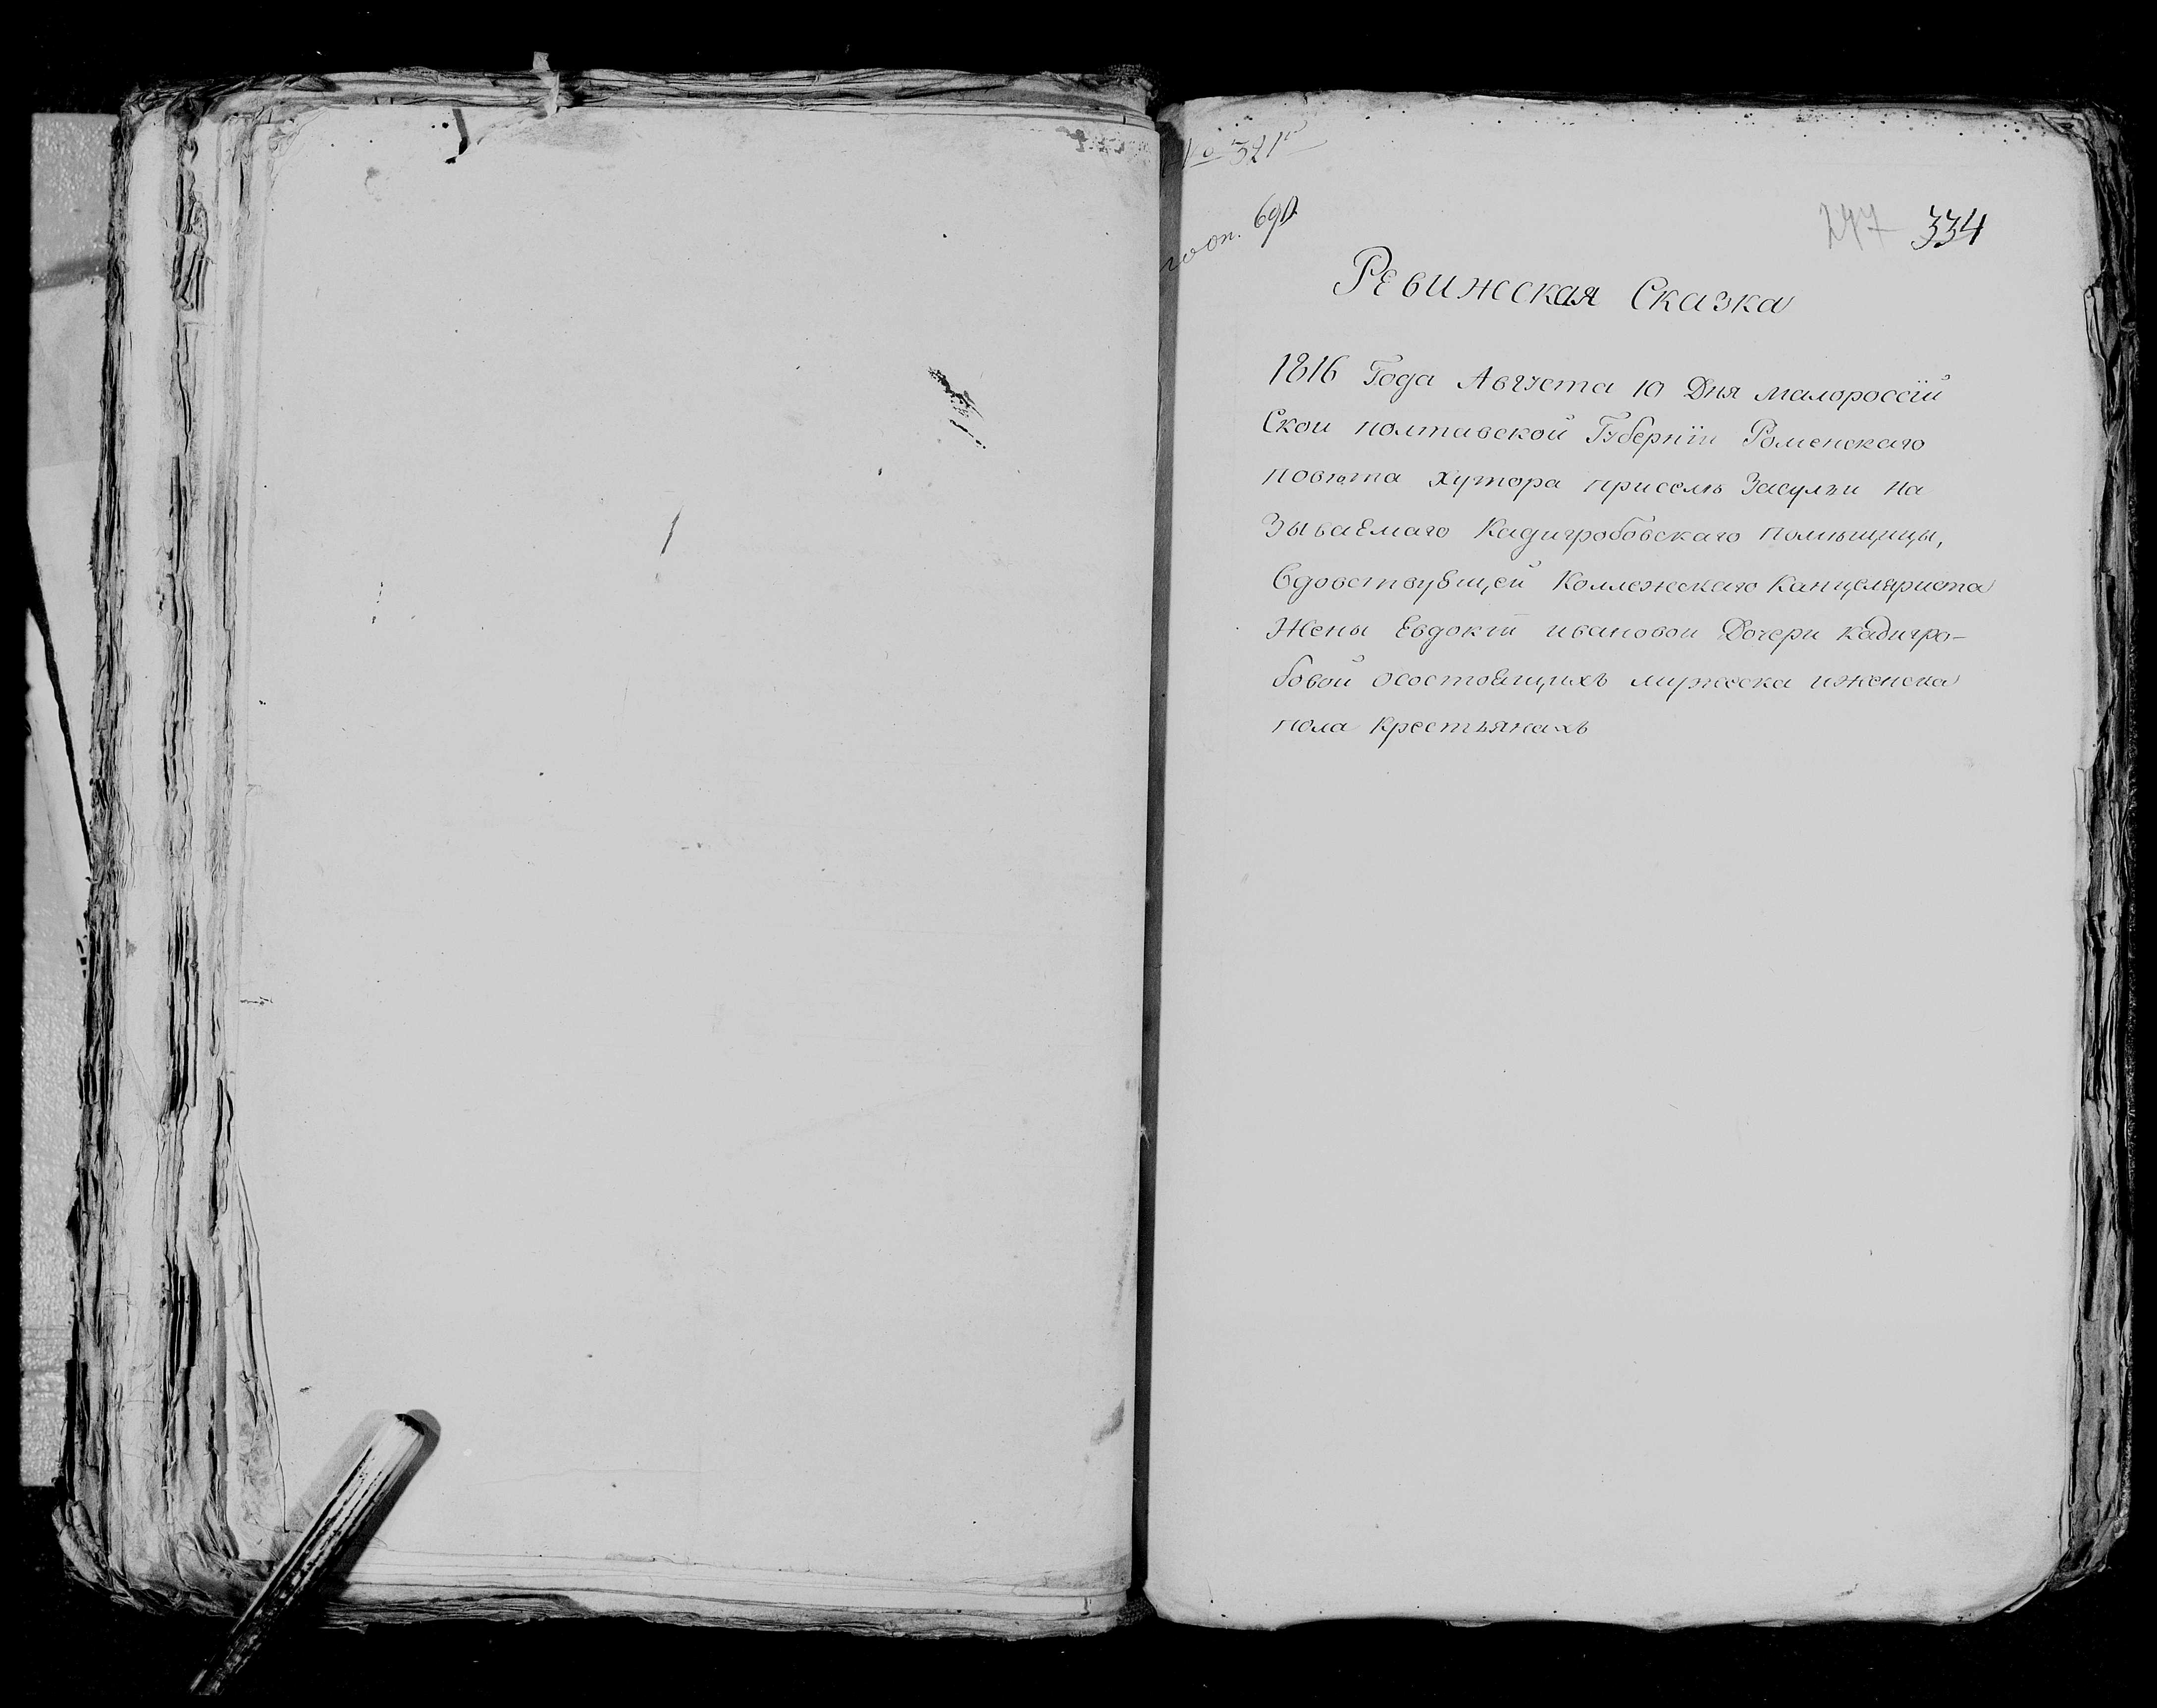 № 321й
по оп. 690
247 334
Ревижская Сказка
1816 Года Августа 10 Дня малоросcїй
Скои полтавской Губернїи Роменскаго
повѣта хутора приселѣ Засулъи На
Зываемаго Кадигробовскаго помѣщицы,
Вдовствующей Коллежскаго Канцеляриста
Жены Евдокїи ивановои Дочери кадигро-
бовой осостоящихъ мужеска иженска
пола крестьянахъ